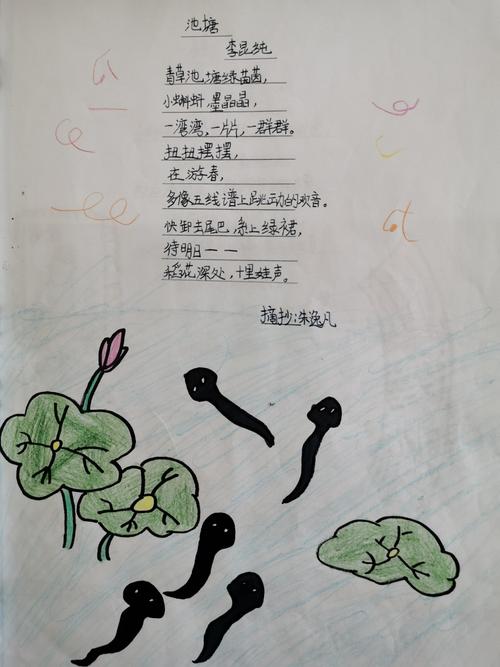 池塘
李昆纯
青草池塘绿茵茵，
小蝌蚪，墨晶晶，
一湾湾，一片片，一群群。
扭扭摆摆，
在游春，
多像五线谱上跳动的欢音。
快卸去尾巴，系上绿裙，
待明日——
稻花深处，十里蛙声。
摘抄：朱逸凡